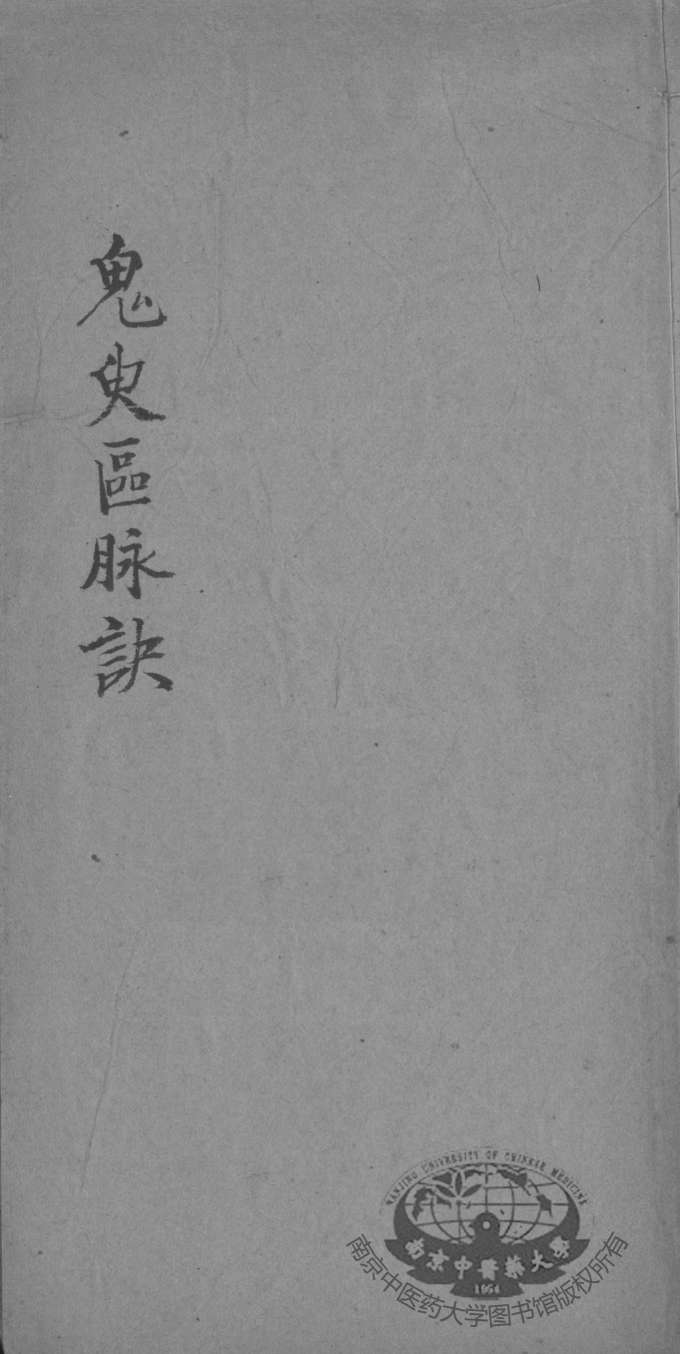 鬼臾區脉訣
NANJING UNIVERSITY OF CHINESE MEDICINE
南京中醫藥大學
1954
南京中医药大学图书馆版权所有